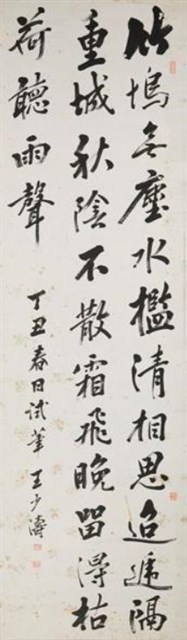 竹塢無塵水檻清相思迢遞隔
重城秋陰不散霜飛晚留得枯
荷聽雨聲
丁丑春日試筆 王少濤